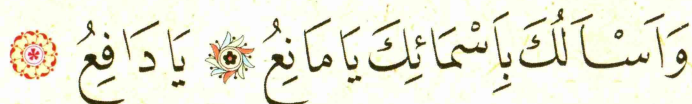 وَاَسْاَلُكَ بِاَسْمَائِكَ يَا مَانِعُ يَا دَافِعُ